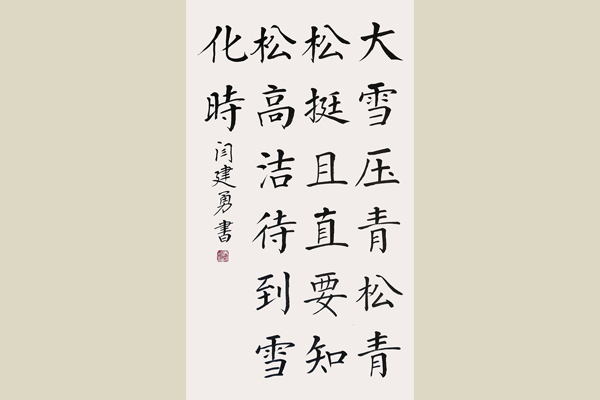 大雪压青松青
松挺且直要知
松高洁待到雪
化時
闫建勇書